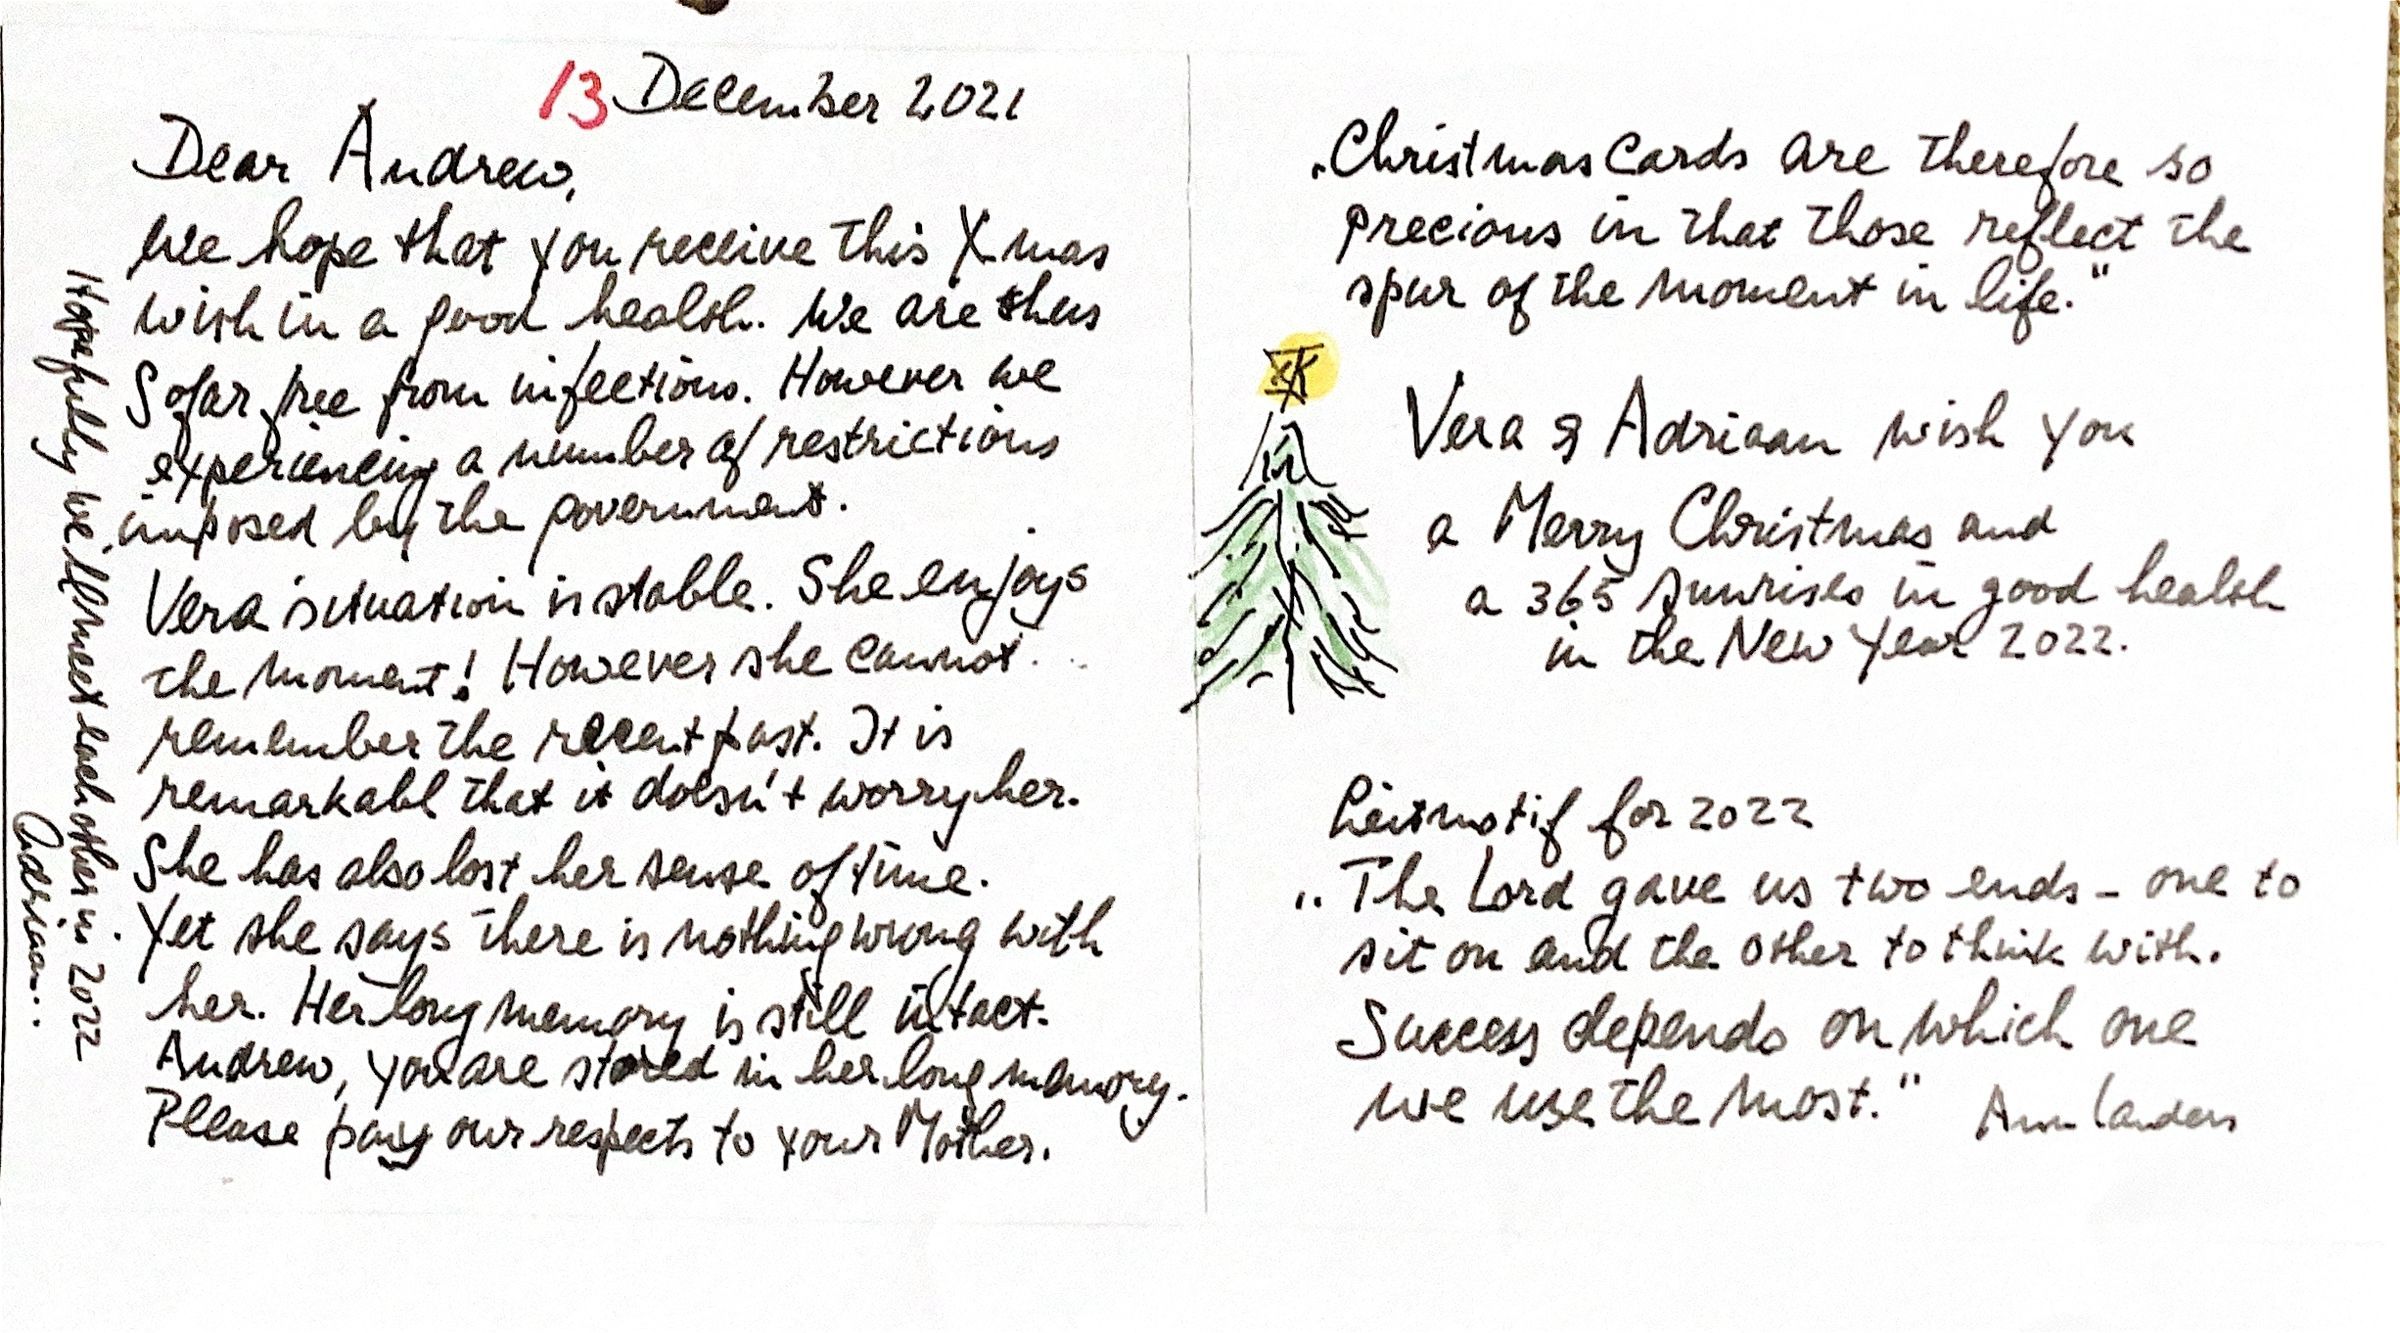 13 December 2021
Dear Andrew,
We hope that you receive this Xmas
wish in a good health. We are thus
Sofar free from infections. However we
experiencing a number of restrictions
imposed by the government.
Vera's situation is stable. She enjoys
the moment! However she cannot
remember the recent past. It is
remarkabl that it doesn't worry her.
She has also lost her sense of time.
Yet she says there is nothing wrong with
her. Her long memory is still intact.
Andrew, you are stored in her long memory.
Please pay our respects to your Mother.
Hopefully we'll meet each other in 2022
Adriaan...
„Christmas Cards are therefore so
precious in that those reflect the
spur of the moment in life."
Vera & Adriaan wish you
a Merry Christmas and
a 365 sunrises in good health
in the New Year 2022.
Leitmotif for 2022
„The Lord gave us two ends - one to
sit on and the other to think with.
Success depends on which one
we use the most." Ann Landers